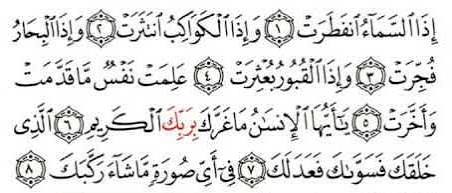 إِذَا ٱلسَّمَآءُ ٱنفَطَرَتْ ١ وَإِذَا ٱلْكَوَاكِبُ ٱنتَثَرَتْ ٢ وَإِذَا ٱلْبِحَارُ
فُجِّرَتْ ٣ وَإِذَا ٱلْقُبُورُ بُعْثِرَتْ ٤ عَلِمَتْ نَفْسٌ مَّا قَدَّمَتْ
وَأَخَّرَتْ ٥ يَٰٓأَيُّهَا ٱلْإِنسَٰنُ مَا غَرَّكَ بِرَبِّكَ ٱلْكَرِيمِ ٦ ٱلَّذِى
خَلَقَكَ فَسَوَّىٰكَ فَعَدَلَكَ ٧ فِىٓ أَىِّ صُورَةٍ مَّا شَآءَ رَكَّبَكَ ٨